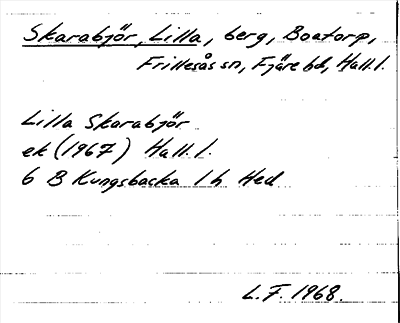 Skarabjör, Lilla, berg, Boatorp,
Frillesås sn, Fjäre hd, Hall. l.
Lilla Skarabjör
ek (1967) Hall. l.
6 B Kungsbacka 1 h Hed
L.F. 1968.